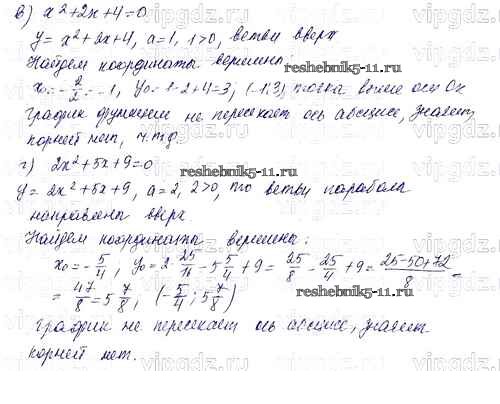 в) x²+2x+4=0
y = x²+2x+4, a=1, 1>0, ветви вверх
Найдем координаты вершины:
x₀=-2/2=-1, y₀=1-2+4=3, (-1;3) точка выше оси Ох
График функции не пересекает ось абсцисс, значит,
корней нет, ч.т.д.
г) 2x²+5x+9=0
y=2x²+5x+9, a=2, 2>0, то ветви параболы
направлены вверх
Найдем координаты вершины:
x₀=-5/4, y₀=2·25/16-5·5/4+9=25/8-25/4+9=(25-50+72)/8=
=47/8=5 7/8, (-5/4; 5 7/8)
График не пересекает ось абсцисс, значит
корней нет.
reshebnik5-11.ru
reshebnik5-11.ru
vipgdz.ru